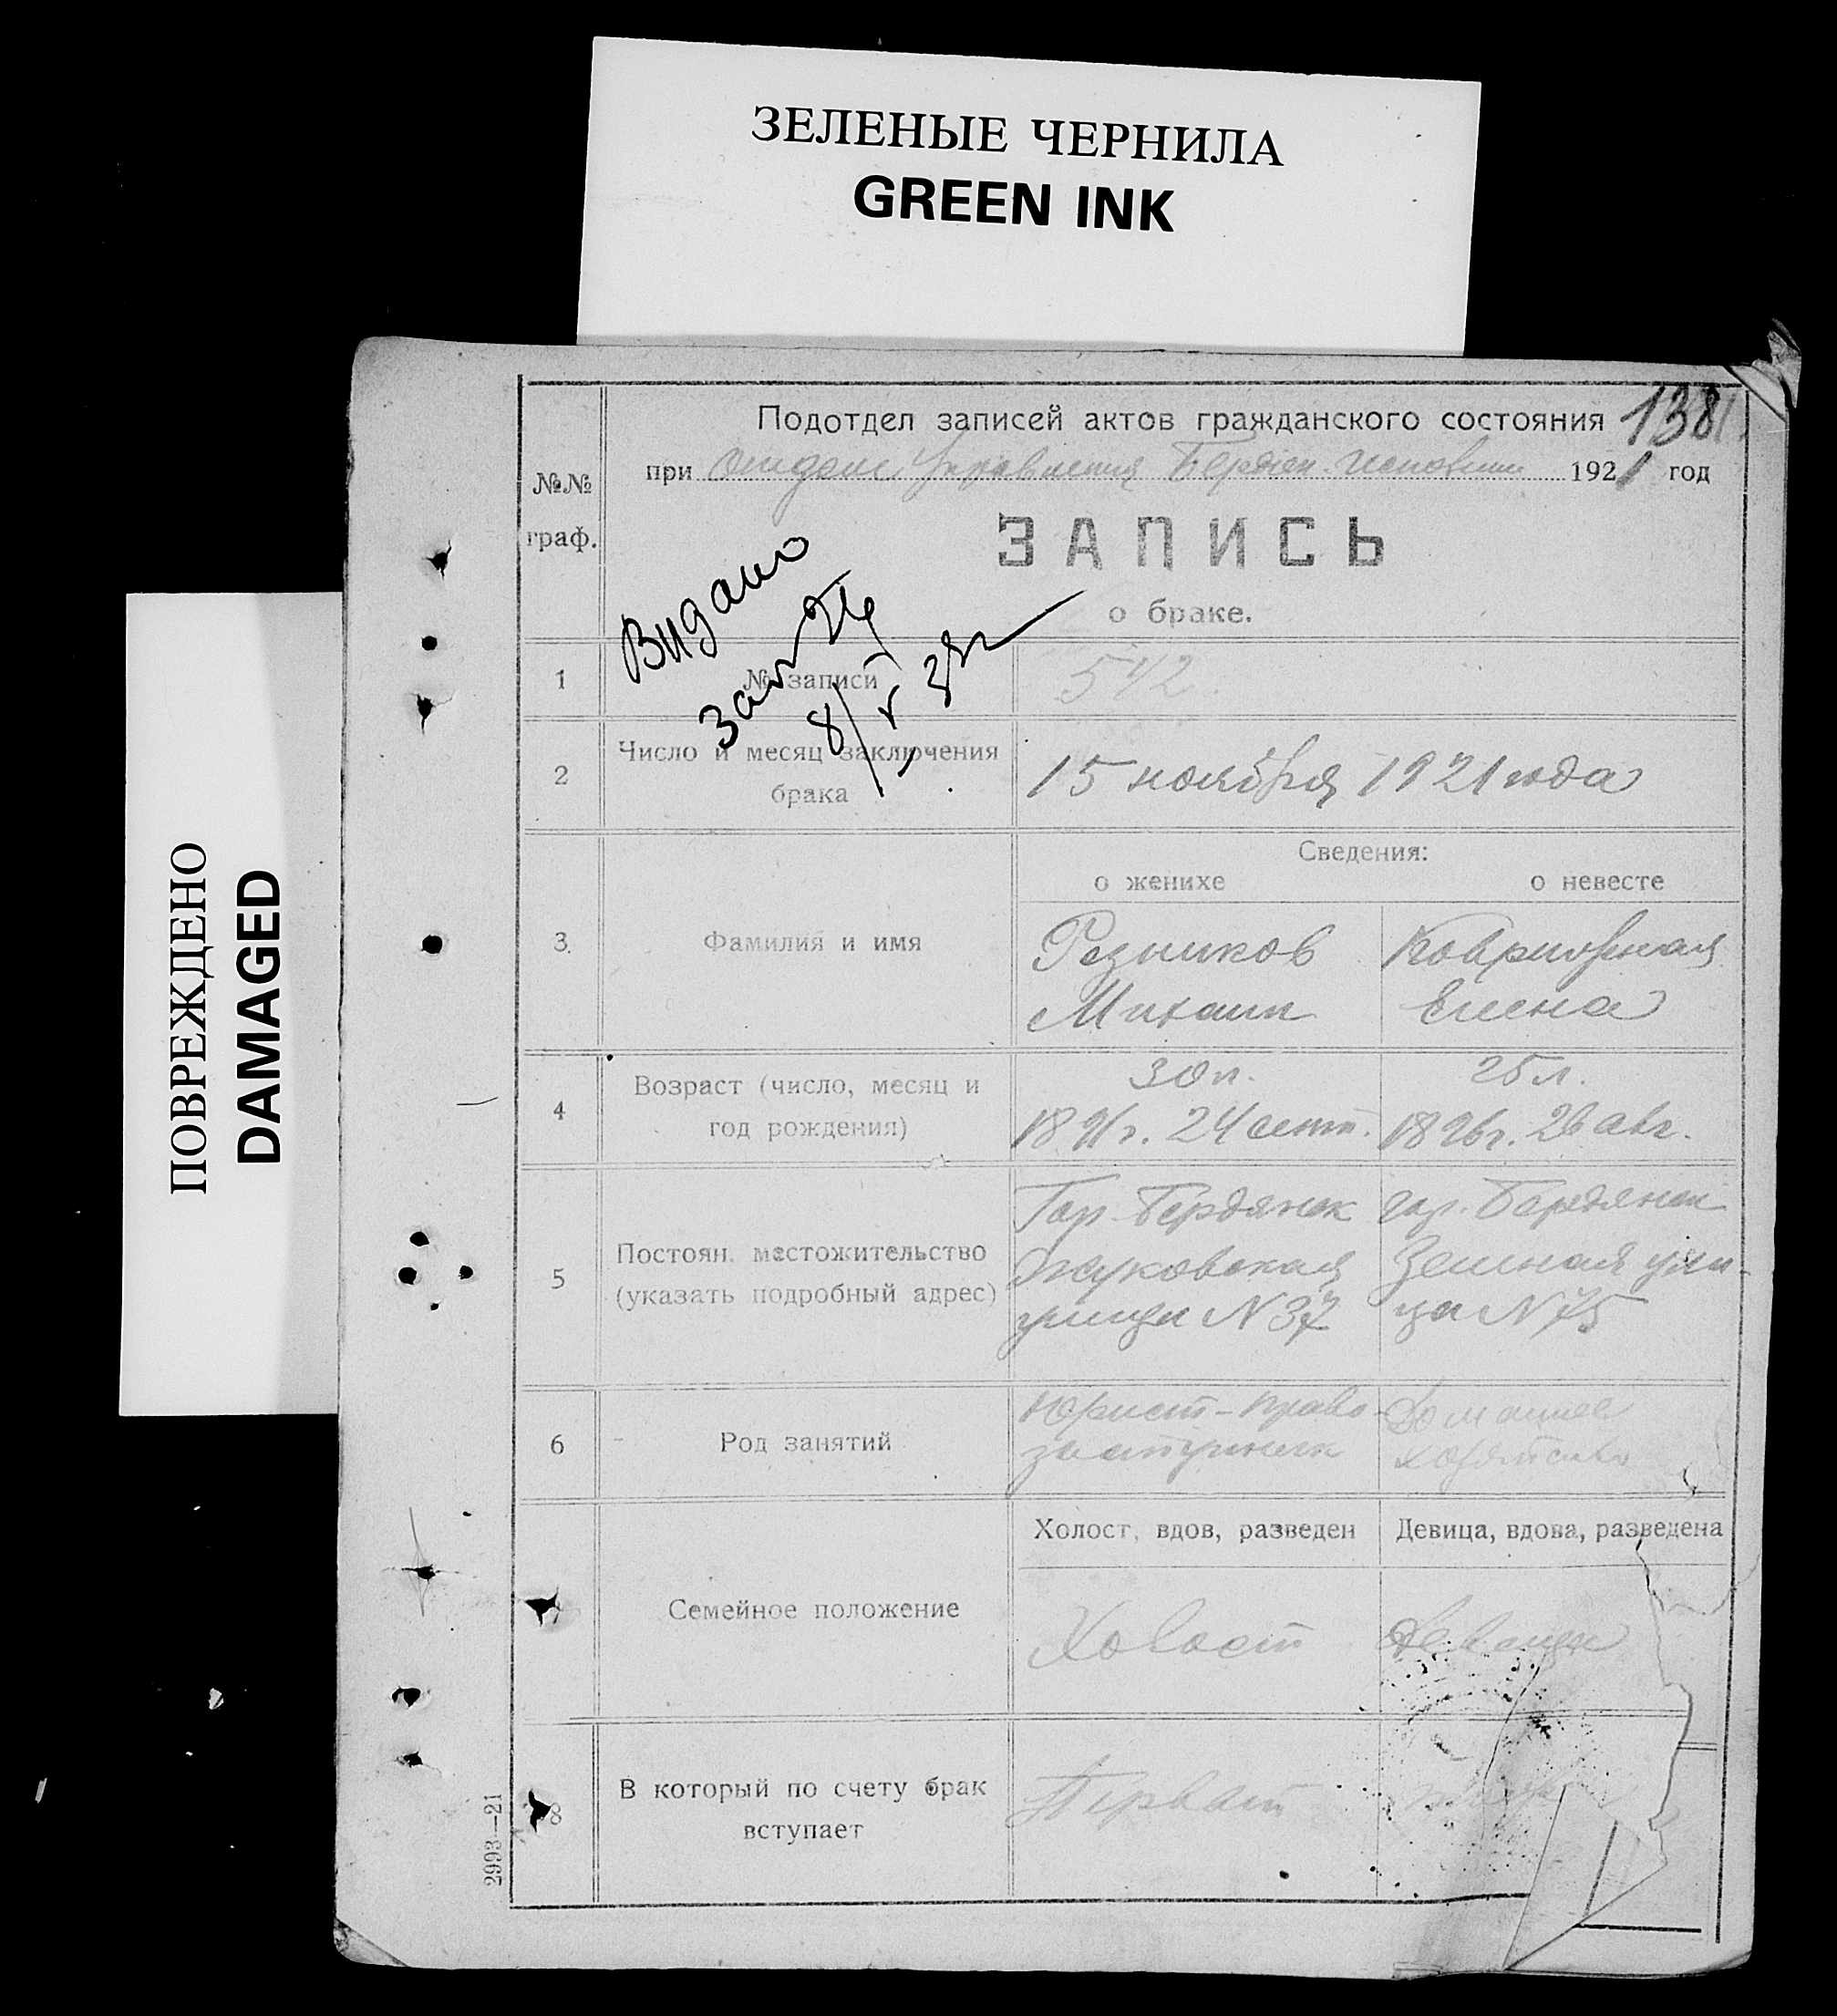 ЗЕЛЕНЫЕ ЧЕРНИЛА
GREEN INK
ПОВРЕЖДЕНО
DAMAGED
138
Подотдел записей актов гражданского состояния
№№ граф.
при отделе Управления Бердян. 1921 год
ЗАПИСЬ
о браке.
Видано
8/V
1 № записи 542.
2 Число и месяц заключения
брака
15 ноября 1921 года
Сведения:
о женихе о невесте
3. Фамилия и имя
Резников
Михаил
Елена
4 Возраст (число, месяц и
год рождения)
30 л. 25 л.
1891 г. 24 сент. 1896 г. 26 авг.
5 Постоян. местожительство
(указать подробный адрес)
Гор. Бердянск гор. Бердянск
Жуковская
улица N 37
Земская ули-
ца N 75
6 Род занятий
Юрист-право-
заступник
Домашнее
хозяйство
Холост, вдов, разведен Девица, вдова, разведена
Семейное положение
Холост Девица
8 В который по счету брак
вступает
Первый
2993—21